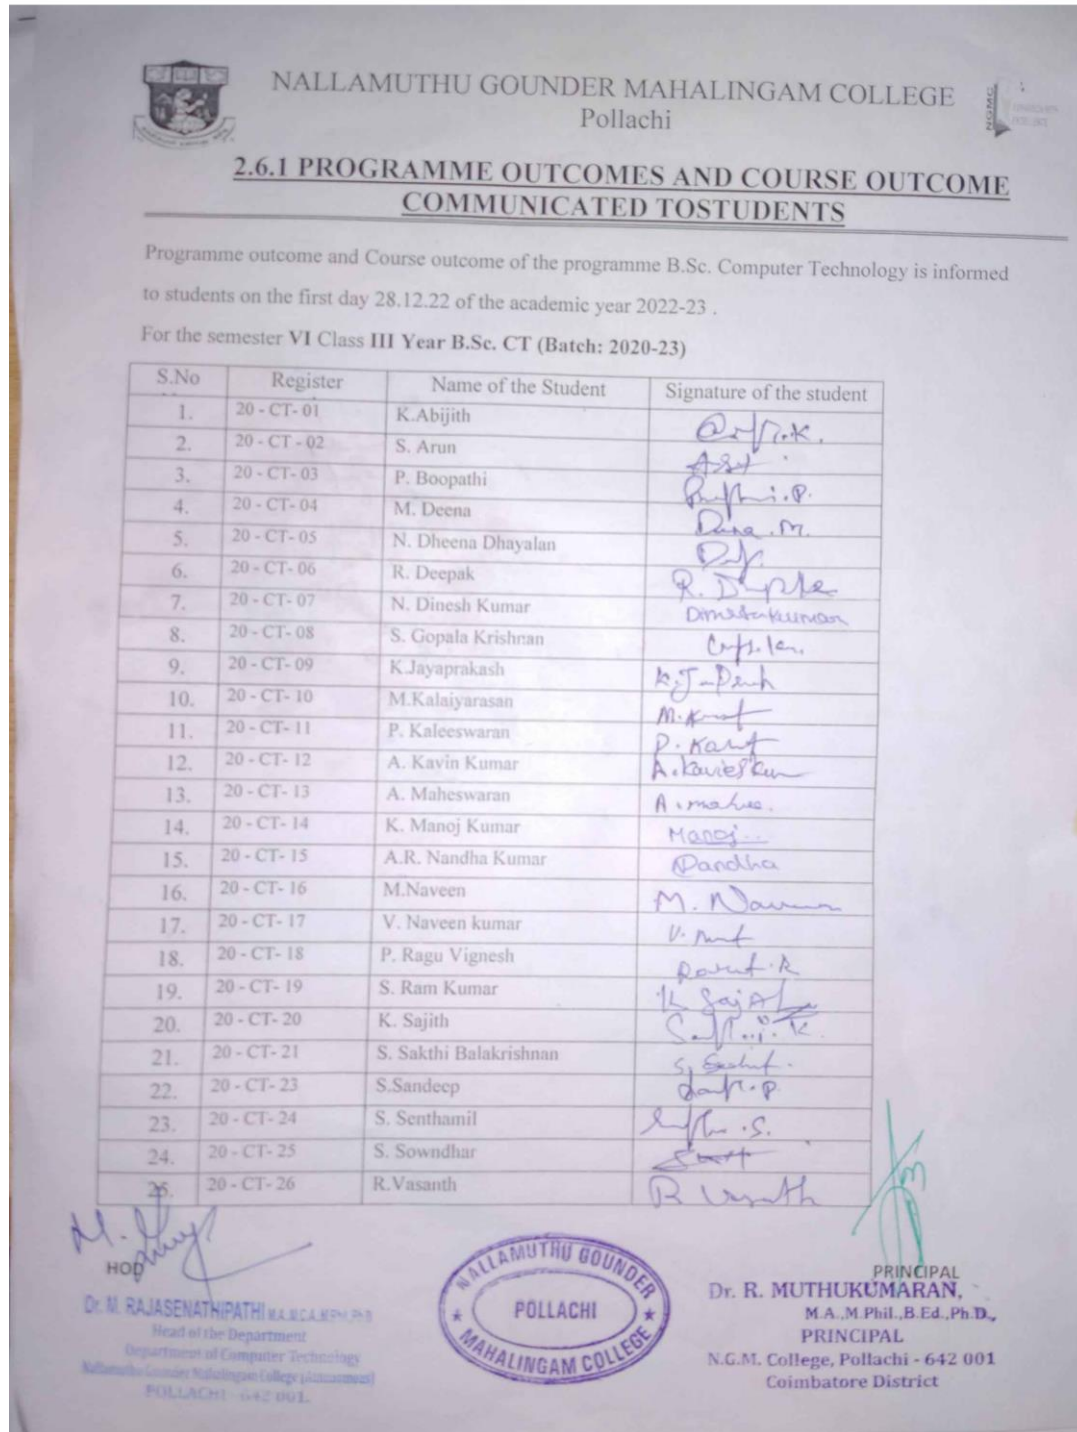 NALLAMUTHU GOUNDER MAHALINGAM COLLEGE
Pollachi
NGMC
2.6.1 PROGRAMME OUTCOMES AND COURSE OUTCOME
COMMUNICATED TOSTUDENTS
Programme outcome and Course outcome of the programme B.Sc. Computer Technology is informed
to students on the first day 28.12.22 of the academic year 2022-23 .
For the semester VI Class III Year B.Sc. CT (Batch: 2020-23)
S.No Register Name of the Student Signature of the student
1. 20 - CT- 01 K.Abijith
2. 20 - CT - 02 S. Arun
3. 20 - CT- 03 P. Boopathi
4. 20 - CT- 04 M. Deena
5. 20 - CT- 05 N. Dheena Dhayalan
6. 20 - CT- 06 R. Deepak
7. 20 - CT- 07 N. Dinesh Kumar
8. 20 - CT- 08 S. Gopala Krishnan
9. 20 - CT- 09 K.Jayaprakash
10. 20 - CT- 10 M.Kalaiyarasan
11. 20 - CT- 11 P. Kaleeswaran
12. 20 - CT- 12 A. Kavin Kumar
13. 20 - CT- 13 A. Maheswaran
14. 20 - CT- 14 K. Manoj Kumar Manoj
15. 20 - CT- 15 A.R. Nandha Kumar Nandha
16. 20 - CT- 16 M.Naveen
17. 20 - CT- 17 V. Naveen kumar
18. 20 - CT- 18 P. Ragu Vignesh
19. 20 - CT- 19 S. Ram Kumar
20. 20 - CT- 20 K. Sajith
21. 20 - CT- 21 S. Sakthi Balakrishnan
22. 20 - CT- 23 S.Sandeep
23. 20 - CT- 24 S. Senthamil
24. 20 - CT- 25 S. Sowndhar
25. 20 - CT- 26 R.Vasanth R Vasanth
HOD
Dr. M. RAJASENATHIPATHI M.A.,M.C.A.,M.Phil.,Ph.D
Head of the Department
Department of Computer Technology
Nallamuthu Gounder Mahalingam College (Autonomous)
POLLACHI - 642 001.
NALLAMUTHU GOUNDER
POLLACHI
MAHALINGAM COLLEGE
PRINCIPAL
Dr. R. MUTHUKUMARAN,
M.A.,M.Phil.,B.Ed.,Ph.D.,
PRINCIPAL
N.G.M. College, Pollachi - 642 001
Coimbatore District